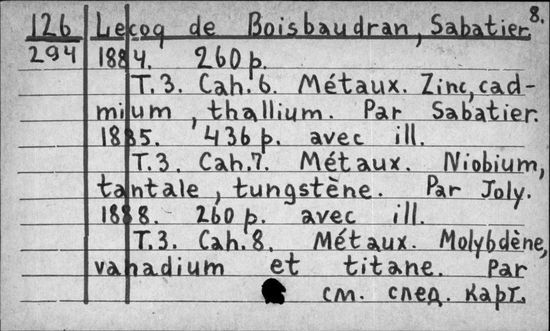 126 Lecoq de Boisbaudran, Sabatier 8.
294 1884. 260 p.
T. 3. Cah. 6. Métaux. Zinc, cad-
mium, thallium. Par Sabatier.
1885. 436 p. avec ill.
T. 3. Cah. 7. Métaux. Niobium,
tantale, tungstène. Par Joly.
1888. 260 p. avec ill.
T. 3. Cah. 8. Métaux. Molybdène,
vanadium et titane. Par
см. след. карт.